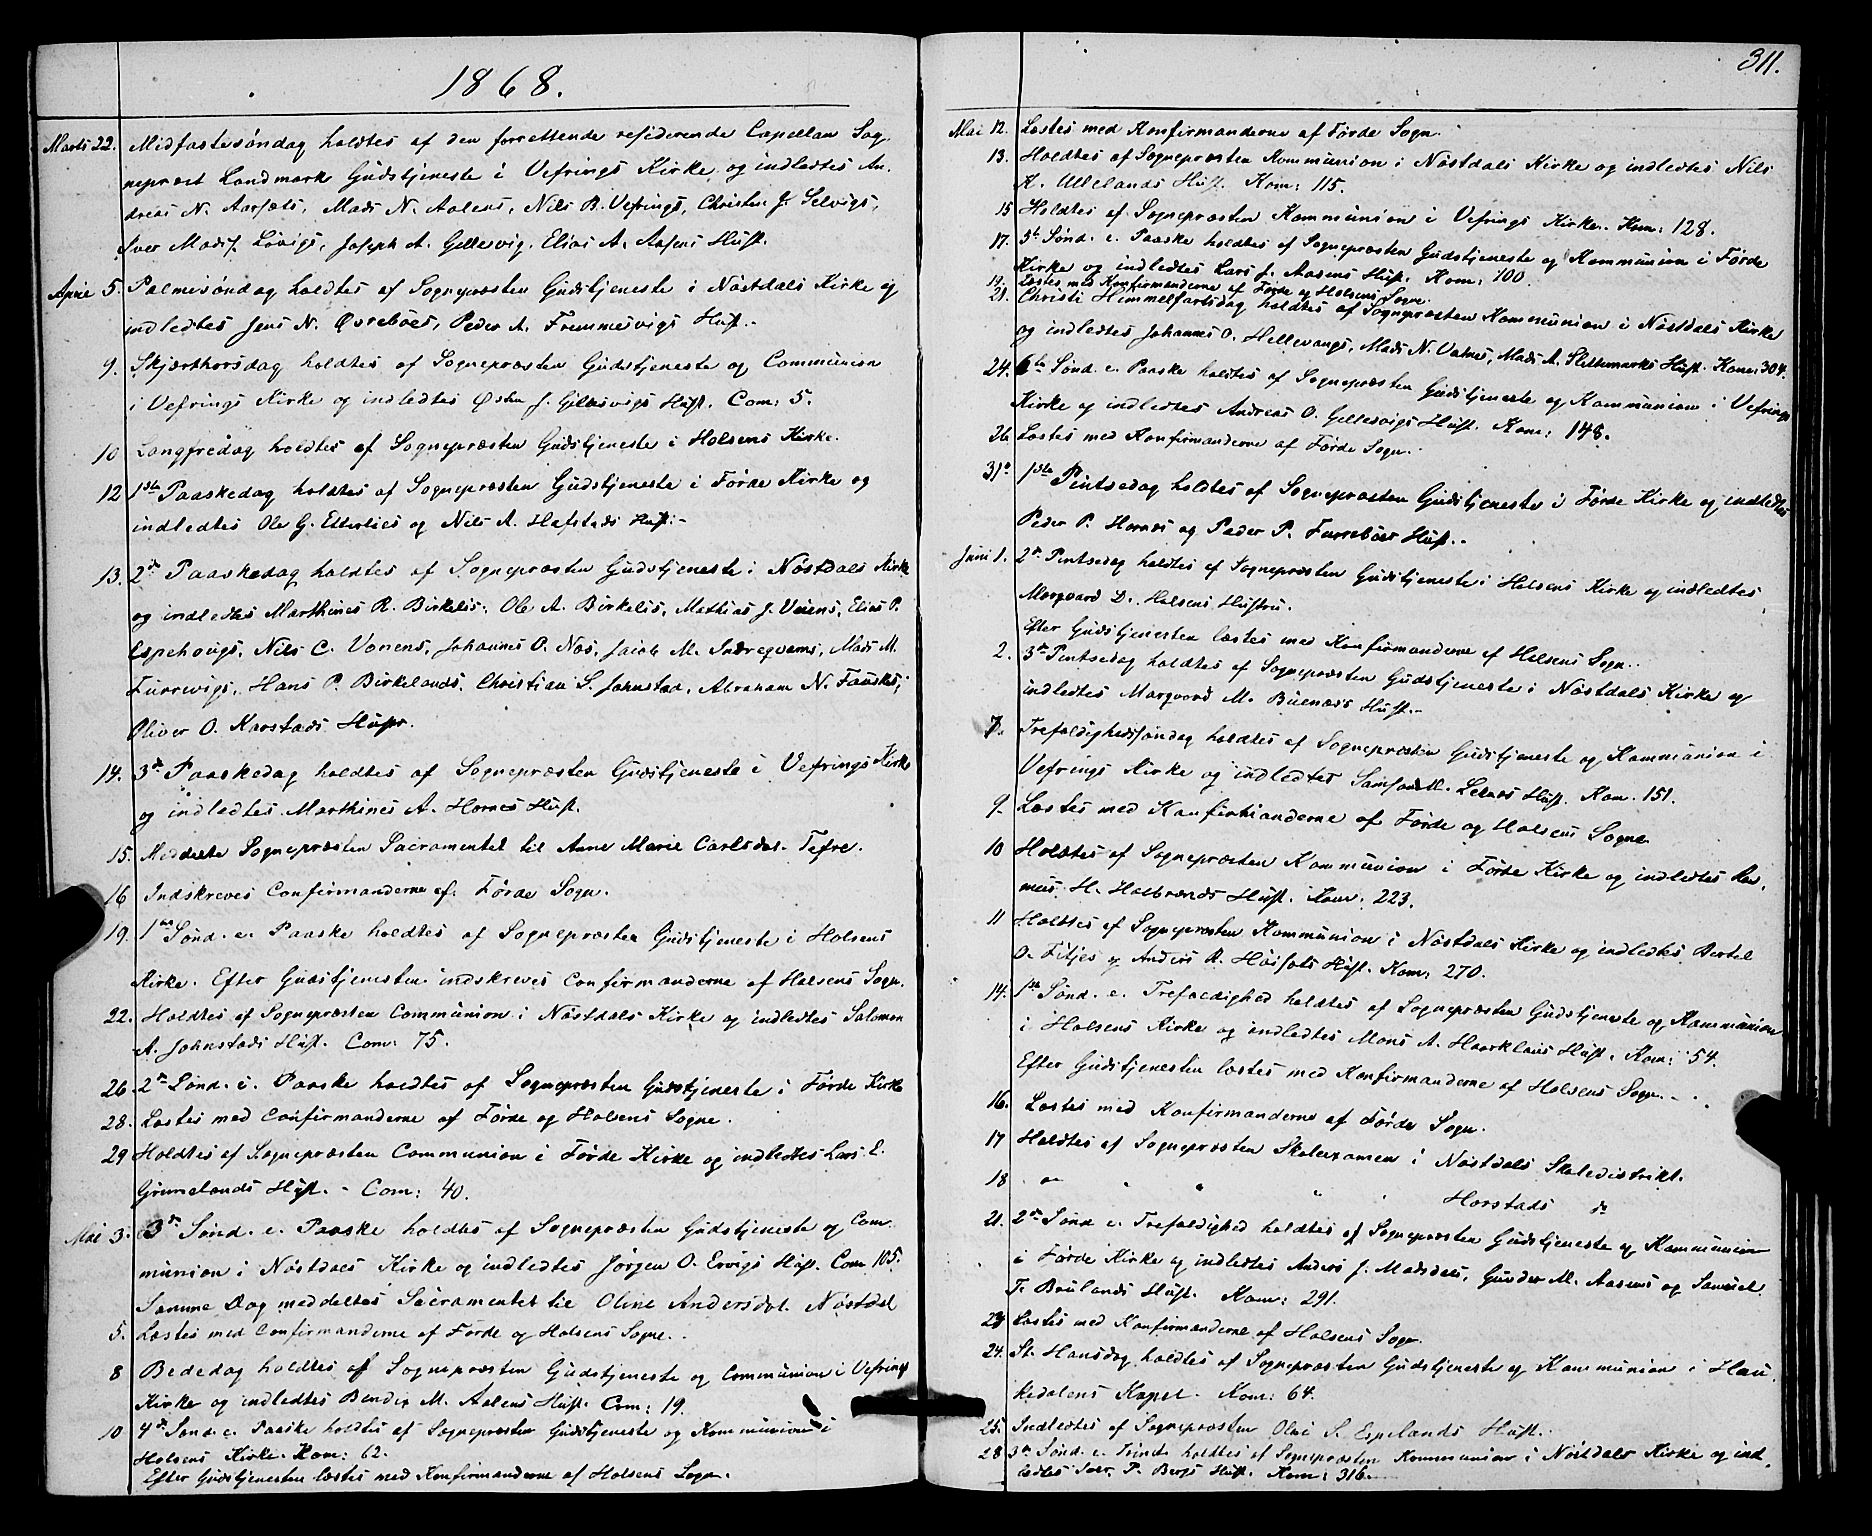 1868.
Marts 22. Midfastesøndag holdtes af den forrettende residerende Capellan Sog-
nepræst Landmark Gudstjeneste i Vefrings Kirke og indledtes An-
dreas N. Aarsæts, Mads N. Aalens, Nils B. Vefrings, Christen J. Selvigs,
Iver Madss. Løvigs, Joseph A. Gellesvig, Elias A. Aasens Hust.
April 5. Palmesøndag holdtes af Sognepræsten Gudstjeneste i Nöstdals Kirke og
indledtes Jens N. Øvreböes, Peder A. Fremmesvigs Hust.-
9. Skjærthorsdag holdtes af Sognepræsten Gudstjeneste og Communion
i Vefrings Kirke og indledtes Østen J. Gellesvigs Hust. Com: 5.
10 Langfredag holdtes af Sognepræsten Gudstjeneste i Holsens Kirke.
12 1ste Paaskedag holdtes af Sognepræsten Gudstjeneste i Førde Kirke og
indledtes Ole G. og Nils A. Hafstads Hust.-
13. 2den Paaskedag holdtes af Sognepræsten Gudstjeneste i Nöstdals Kirke
og indledtes Marthines R. Birkelis, Ole A. Birkelis, Mathias J. Veiens, Elias P.
Espehougs, Nils C. Vonens, Johannes O. Nœs, Jacob M. Indreqvams, Mads M.
Furrevigs, Hans P. Birkelands, Christian S. Johnstad, Abraham N. Fauskes,
Oliver O. Karstads Hustr.
14. 3die Paaskedag holdtes af Sognepræsten Gudstjeneste i Vefrings Kirke
og indledtes Marthines A. Hornes Hust.
15. Meddelte Sognepræsten Sacramentet til Anne Marie Carlsdat. Tefre.
16 Indskreves Confirmanderne af Førde Sogn.
19. 1ste Sönd. e. Paaske holdtes af Sognepræsten Gudstjeneste i Holsens
Kirke. Efter Gudstjenesten indskreves Confirmanderne af Holsens Sogn.
22. Holdtes af Sognepræsten Communion i Nöstdals Kirke og indledtes Salomon
A. Johnstads Hust. Com: 75.
26. 2den Sönd. e. Paaske holdtes af Sognepræsten Gudstjeneste i Førde Kirke
28. Læstes med Confirmanderne af Førde og Holsens Sogne.
29 Holdtes af Sognepræsten Communion i Førde Kirke og indledtes Lars E.
Grimelands Hust. - Com: 40.
Mai 3. 3die Sönd. e. Paaske holdtes af Sognepræsten Gudstjeneste og Com-
munion i Nöstdals Kirke og indledtes Jörgen O. Ervigs Hust. Com 105.
Samme Dag meddeltes Sacramentet til Oline Andersdat. Nöstdal
5. Læstes med Confirmanderne af Førde og Holsens Sogne.
8 Bededag holdtes af Sognepræsten Gudstjeneste og Communion i Vefrings
Kirke og indledtes Bendix M. Aalens Hust. Com: 19.
10 4de Sönd. e. Paaske holdtes af Sognepræsten Gudstjeneste og Kommunion i
Holsens Kirke. Kom: 62.
Efter Gudstjenesten læstes med Konfirmanderne af Holsens Sogn.
311.
Mai 12. Læstes med Konfirmanderne af Førde Sogn.
13. Holdtes af Sognepræsten Kommunion i Nöstdals Kirke og indledtes Nils
A. Ullelands Hust. Kom: 115.
15 Holdtes af Sognepræsten Kommunion i Vefrings Kirke. Kom: 128.
17. 5te Sönd. e. Paaske holdtes af Sognepræsten Gudstjeneste og Kommunion i Førde
Kirke og indledtes Lars J. Aasens Hust. Kom: 100.
19. Læstes med Konfirmanderne af Førde og Holsens Sogne.
21. Christi Himmelfartsdag holdtes af Sognepræsten Kommunion i Nöstdals Kirke
og indledtes Johannes O. Hellevangs, Mads N. Vatnes, Mads A. Slettemarks Hust. Kom: 304.
24. 6te Sönd. e. Paaske holdtes af Sognepræsten Gudstjeneste og Kommunion i Vefrings
Kirke og indledtes Andreas O. Gellesvigs Hust. Kom: 148.
26 Læstes med Konfirmanderne af Førde Sogn.
31. 1ste Pintsedag holdtes af Sognepræsten Gudstjeneste i Førde Kirke og indledtes
Peder P. Hornes og Peder P. Furreböes Hust.
Juni 1. 2den Pintsedag holdtes af Sognepræsten Gudstjeneste i Holsens Kirke og indledtes
Morgaard D. Holsens Hustru.
Efter Gudstjenesten læstes med Konfirmanderne af Holsens Sogn.
2. 3die Pintsedag holdtes af Sognepræsten Gudstjeneste i Nöstdals Kirke og
indledtes Morgaard M. Buenæs Hust.-
7. Trefoldighedssöndag holdtes af Sognepræsten Gudstjeneste og Kommunion i
Vefrings Kirke og indledtes Samson M. Leknes Hust. Kom. 151.
9. Læstes med Konfirmanderne af Førde og Holsens Sogne.
10 Holdtes af Sognepræsten Kommunion i Førde Kirke og indledtes Ras-
mus H. Halbrends Hust. Kom: 223.
11 Holdtes af Sognepræsten Kommunion i Nöstdals Kirke og indledtes Bertel
O. Fitjes og Anders R. Höisæts Hust. Kom: 270.
14. 1ste Sönd. e. Trefoldighed holdtes af Sognepræsten Gudstjeneste og Kommunion
i Holsens Kirke og indledtes Mons A. Haarklaus Hust. Kom: 54.
Efter Gudstjenesten læstes med Konfirmanderne af Holsens Sogn.
16. Læstes med Konfirmanderne af Førde Sogn.
17 Holdtes af Sognepræsten Skoleexamen i Nöstdals Skoledistrikt.
18 do " " " " Horstads do
21. 2den Sönd. e. Trefoldighed holdtes af Sognepræsten Gudstjeneste og Kommunion
i Førde Kirke og indledtes Anders J. Modsdals, Gunder M. Aasens og Samuel
T. Brulands Hust. Kom: 291.
23 Læstes med Konfirmanderne af Holsens Sogn.
24. St. Hansdag holdtes af Sognepræsten Gudstjeneste og Kommunion i Hau-
kedalens Kapel. Kom: 64.
25. Indledtes af Sognepræsten Olai S. Espelands Hust.
28 3die Sönd. e. Trinit. holdtes af Sognepræsten Kommunion i Nöstdals Kirke og ind-
ledtes Iver P. Bergs Hust. Kom: 316.